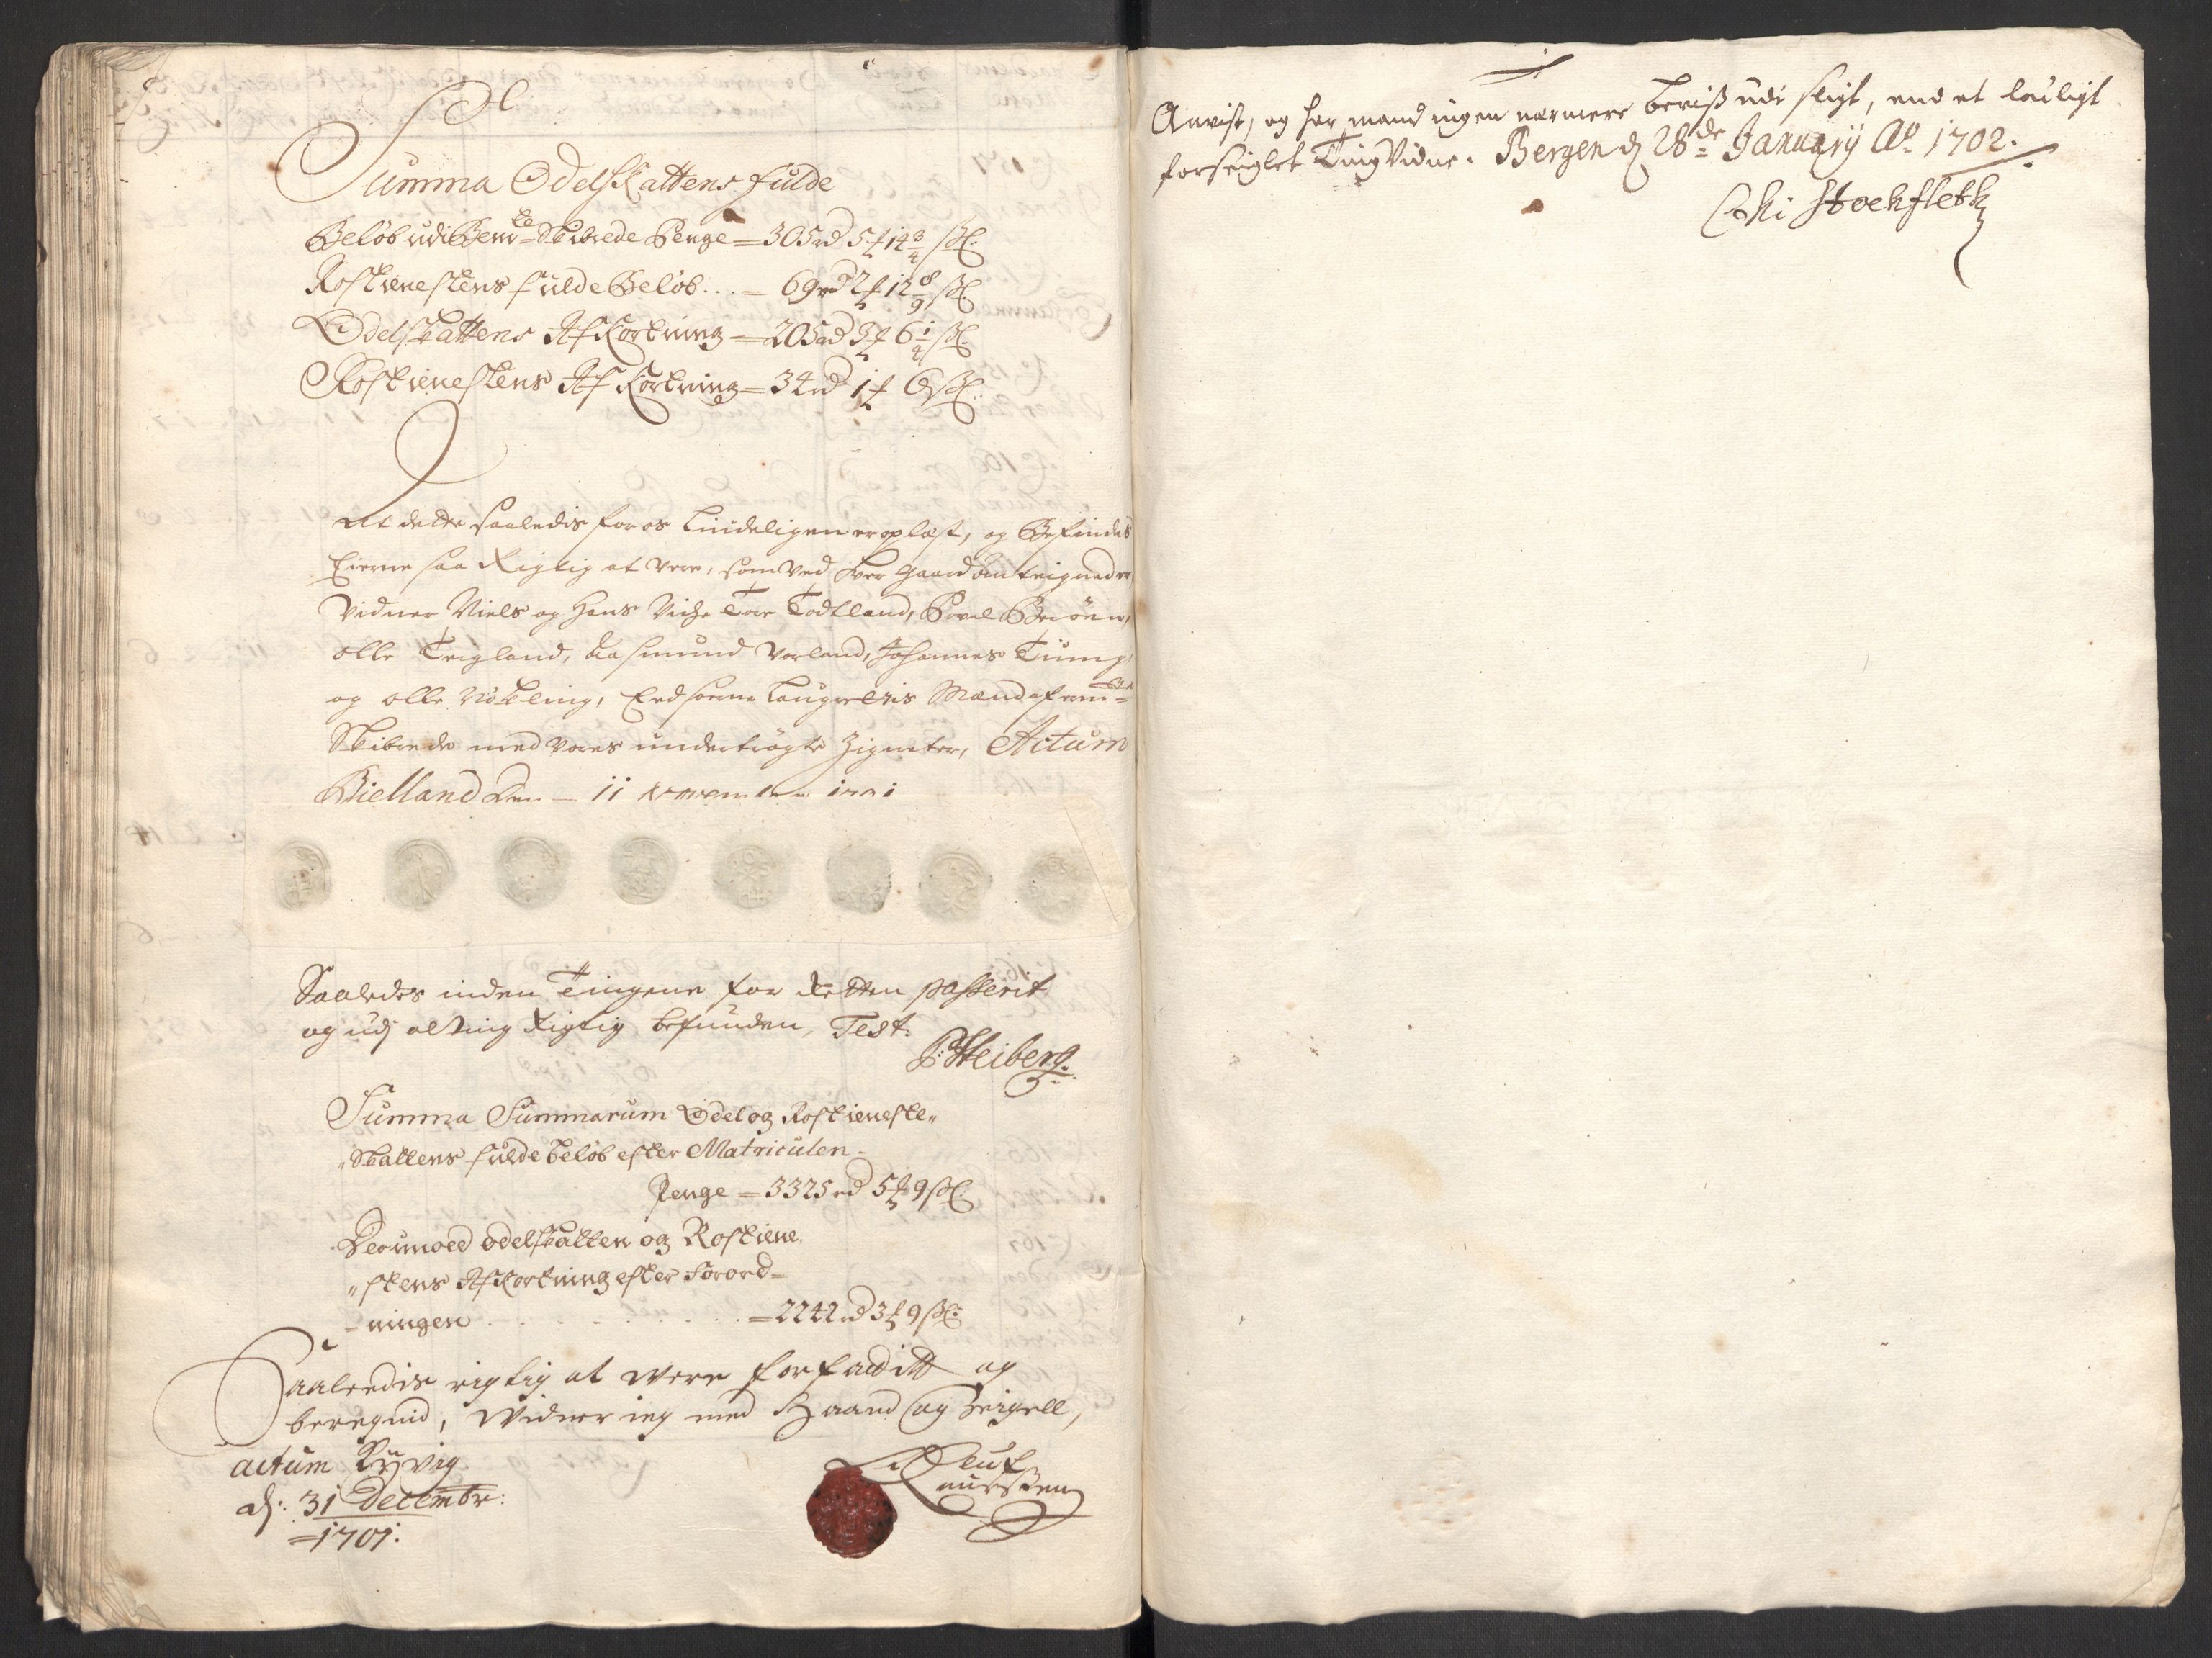 Summa Odelskattens fulde
Beløb udi Bem:te Skibrede Penge = 305 rd 5 ₰ 14 3/4 sk:
Rostienestens fulde Beløb... = 69 rd 2 ₰ 12 8/9 sk
Odelskattens Afkortning = 205 rd 3 ₰ 6 1/4 sk:
Rostienestens Afkortning = 34 rd 1 ₰ 6 sk:
At dette saaledis for os lydeligen er oplæst, og Befindes
Eierne saa Rigtig at være, som ved hver gaard anteigned er
Vidner Niels og Hans Tore Todland, Povel
olle Teigland, Aasmund Vorland, Johannes
og olle Nøkling, Eedsorne Laugrettis Mænd af
Skibrede med vores undertrøgte Zigneter, Actum
Bielland den - 11 November 1701
Saaledes inden Tingene for Retten passerit
og udj alting Rigtig befunden, Test.
P: Heiberg:
Summa Summarum Odel og Rostieneste„
„Skattens fulde beløb efter Matriculen -
Penge = 3325 rd 5 ₰ 9 sk:
Derimoed odelskatten og Rostiene„
„stens Afkortning efter Forord=
=ningen . . . . . . . = 2242 rd 3 ₰ 9 sk:
Saaledis rigtig at were forfattitt og
beregnid, Widner ieg med Haand og Zeigell,
actum Ryvig
dj: 31 Decembr:
=1701.
Oluf
Laurssen
Anvist, og har mand ingen nærmere beviß udi sligt, end et louligt
forseiglet Tingvidne. Bergen dj 28de January Ao 1702.
Chri Stockfleth